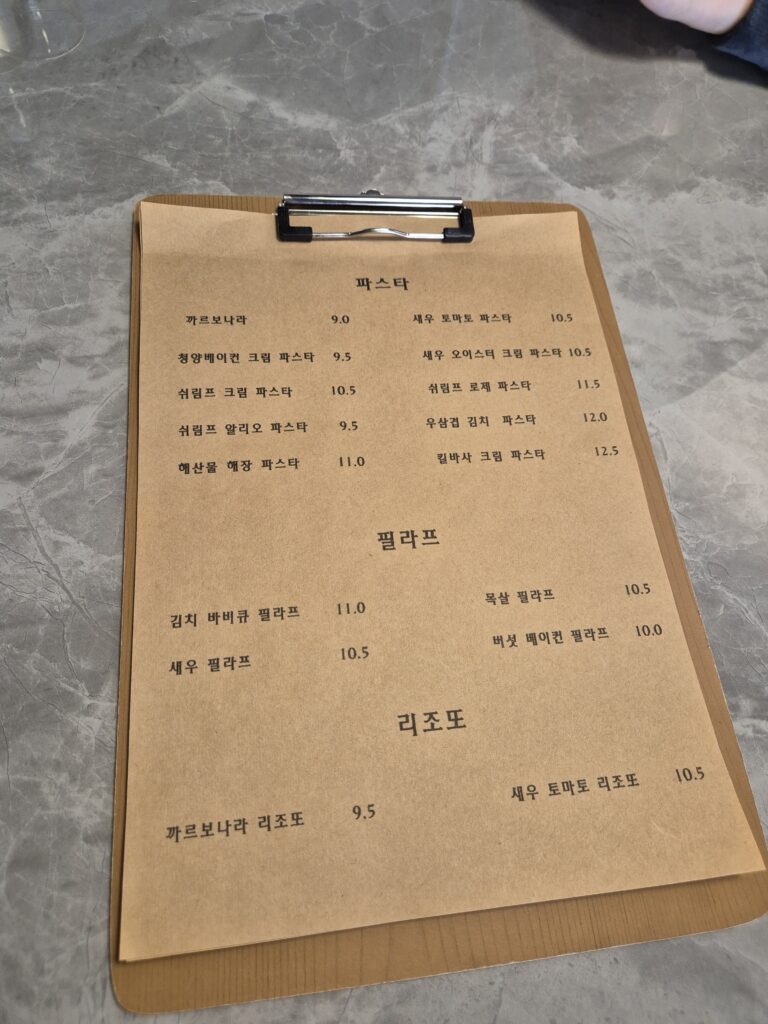 파스타
까르보나라 9.0 새우 토마토 파스타 10.5
청양베이컨 크림 파스타 9.5 새우 오이스터 크림 파스타 10.5
쉬림프 크림 파스타 10.5 쉬림프 로제 파스타 11.5
쉬림프 알리오 파스타 9.5 우삼겹 김치 파스타 12.0
해산물 해장 파스타 11.0 킬바사 크림 파스타 12.5
필라프
김치 바비큐 필라프 11.0 목살 필라프 10.5
새우 필라프 10.5 버섯 베이컨 필라프 10.0
리조또
까르보나라 리조또 9.5 새우 토마토 리조또 10.5